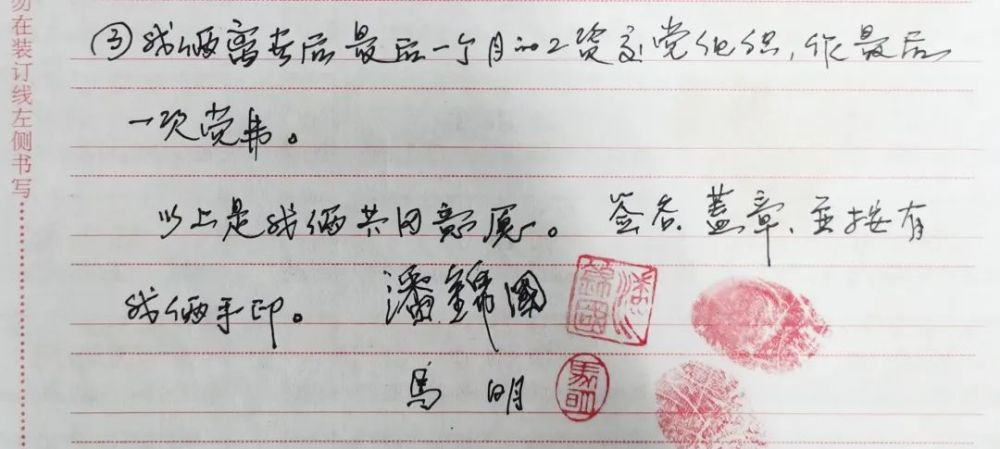 勿在装订线左侧书写
③我俩离去后最后一个月的工资交党组织,作最后
一次党费。
以上是我俩共同意愿。签名、蓋章、並按有
我俩手印。潘錦國
潘錦國
馬明
馬明